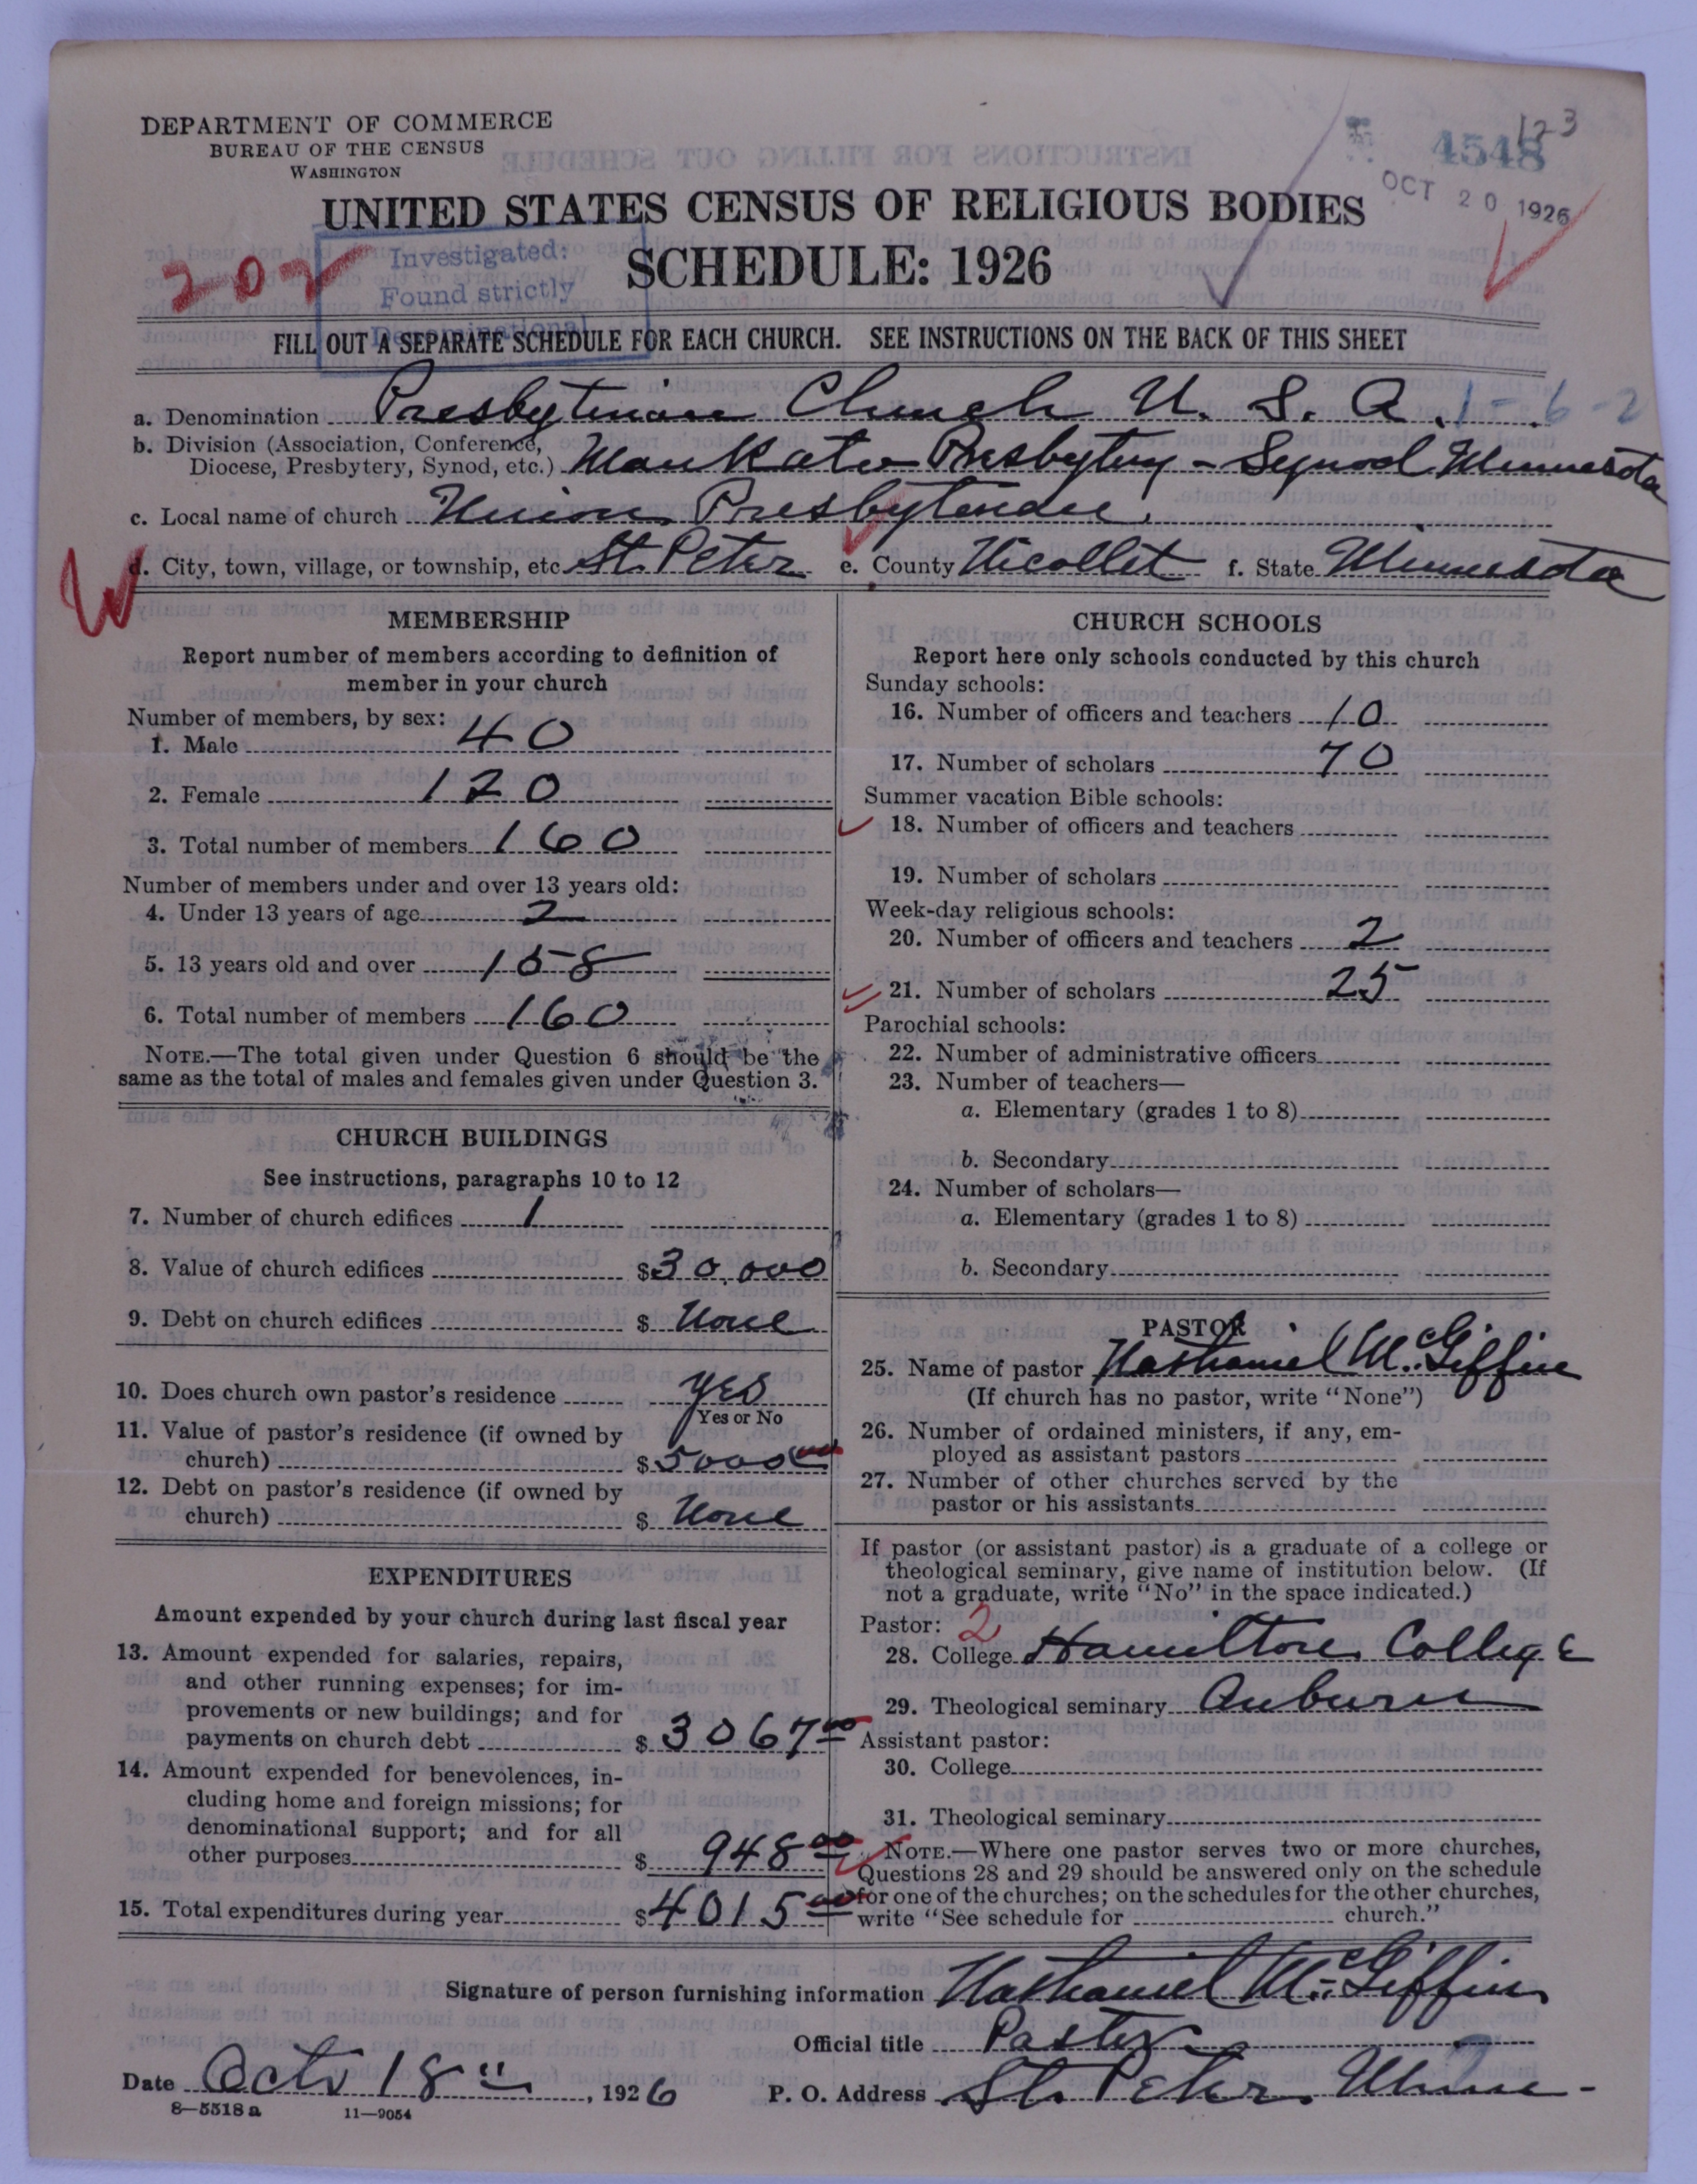 DEPARTMENT OF COMMERCE
BUREAU OF THE CENSUS
WASHINGTON
123
4548
OCT 20 1926
UNITED STATES CENSUS OF RELIGIOUS BODIES
SCHEDULE: 1926
202
Investigated:
Found strictly
Denominational
FILL OUT A SEPARATE SCHEDULE FOR EACH CHURCH. SEE INSTRUCTIONS ON THE BACK OF THIS SHEET
a. Denomination Presbyterian Church U. S. A. 1-6-2
b. Division (Association, Conference,
Diocese, Presbytery, Synod, etc.) Mankato Presbytery - Synod Minnesota
c. Local name of church Union Presbyterian
d. City, town, village, or township, etc St. Peter e. County Nicollet f. State Minnesota
MEMBERSHIP
Report number of members according to definition of
member in your church
Number of members, by sex:
1. Male 40
2. Female 120
3. Total number of members 160
Number of members under and over 13 years old:
4. Under 13 years of age 2
5. 13 years old and over 158
6. Total number of members 160
NOTE.—The total given under Question 6 should be the
same as the total of males and females given under Question 3.
CHURCH BUILDINGS
See instructions, paragraphs 10 to 12
7. Number of church edifices 1
8. Value of church edifices $30,000
9. Debt on church edifices $ None
10. Does church own pastor's residence yes
Yes or No
11. Value of pastor's residence (if owned by
church) $5000 00
12. Debt on pastor's residence (if owned by
church) $ None
EXPENDITURES
Amount expended by your church during last fiscal year
13. Amount expended for salaries, repairs,
and other running expenses; for im-
provements or new buildings; and for
payments on church debt $ 3067 00
14. Amount expended for benevolences, in-
cluding home and foreign missions; for
denominational support; and for all
other purposes $ 948 00
15. Total expenditures during year $4015 00
CHURCH SCHOOLS
Report here only schools conducted by this church
Sunday schools:
16. Number of officers and teachers 10
17. Number of scholars 70
Summer vacation Bible schools:
18. Number of officers and teachers
19. Number of scholars
Week-day religious schools:
20. Number of officers and teachers 2
21. Number of scholars 25
Parochial schools:
22. Number of administrative officers
23. Number of teachers—
a. Elementary (grades 1 to 8)
b. Secondary
24. Number of scholars—
a. Elementary (grades 1 to 8)
b. Secondary
PASTOR
25. Name of pastor Nathaniel McGiffin
(If church has no pastor, write "None")
26. Number of ordained ministers, if any, em-
ployed as assistant pastors
27. Number of other churches served by the
pastor or his assistants
If pastor (or assistant pastor) is a graduate of a college or
theological seminary, give name of institution below. (If
not a graduate, write "No" in the space indicated.)
Pastor: 2
28. College Hamilton College
29. Theological seminary Auburn
Assistant pastor:
30. College
31. Theological seminary
NOTE.—Where one pastor serves two or more churches,
Questions 28 and 29 should be answered only on the schedule
for one of the churches; on the schedules for the other churches,
write "See schedule for church."
Signature of person furnishing information Nathaniel McGiffin
Official title Pastor
Date Oct 18", 1926 P. O. Address St. Peter, Minn-
8-5518a 11-9054